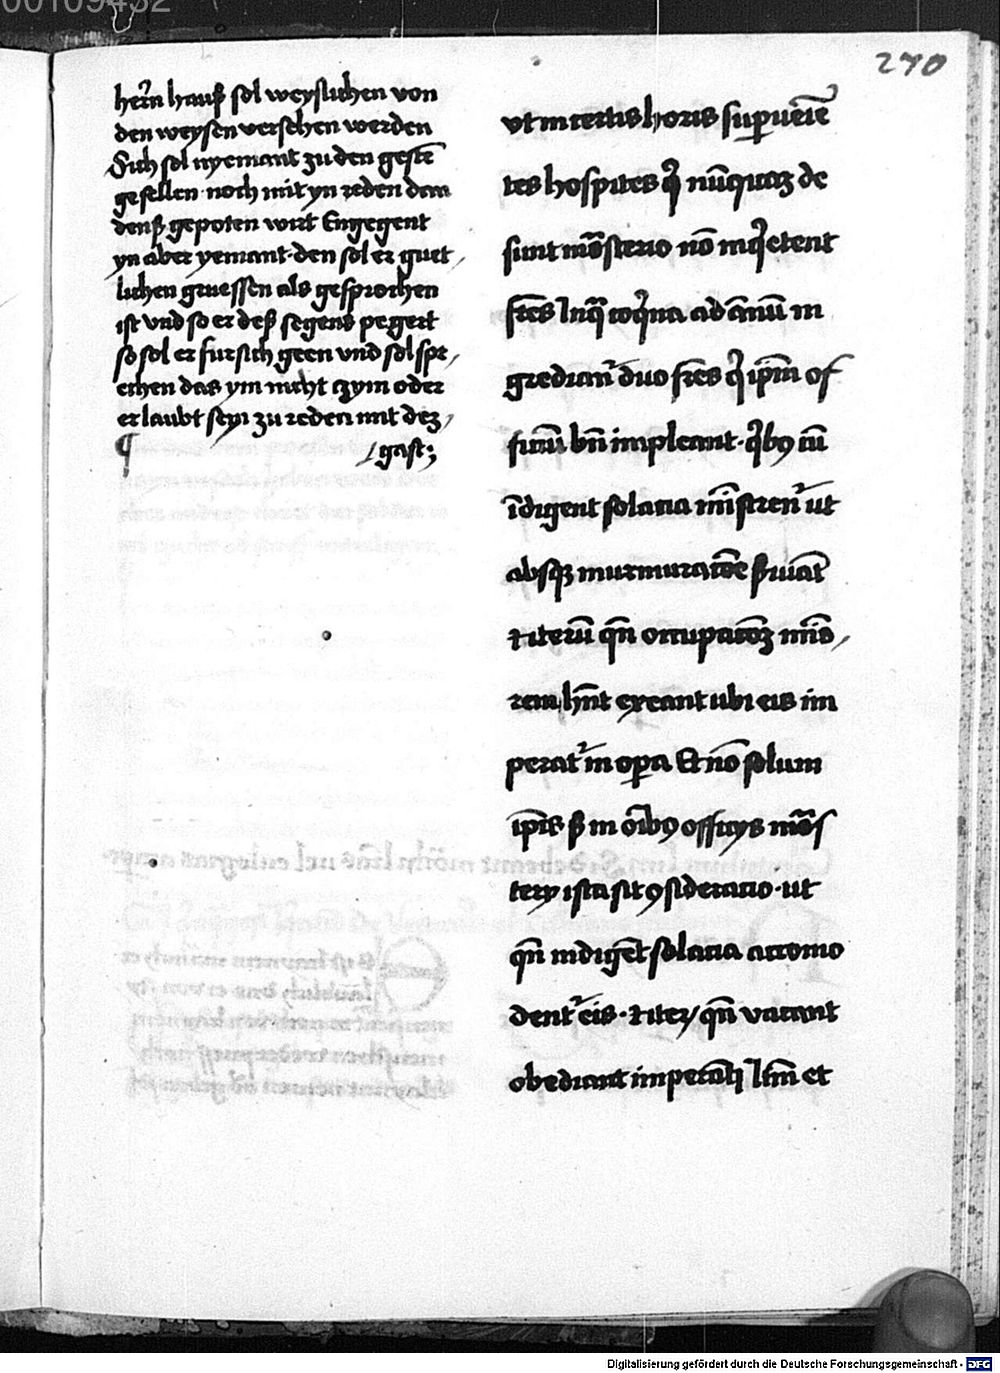 270
herrn hauß sol weyslichen von
den weysen versehen werden
Auch sol nyemant zu den gestē
gesellen noch mit yn reden dan
denß gepoten wirt Engegent
yn aber yemant·den sol er guet/
lichen gruessen als gesprochen
ist vnd so er deß segens pegert
so sol er fursich geen vnd sol spr/
echen das ym nicht czym oder
erlaubt sey zu reden mit dez/
¶ /gast;
vt incertis horis supueniē
tes hospites q̄ nūquaz de
sunt mōsterio nō inq̄etent
fr̄es In qͣ coqͥna ad ānū in
gredianͬ duo fr̄es qͥ ip̄m of
ficiū bn̄ impleant·qͥbꝯ cū
īdigent solacia mīstrenͬ ut
absqꝫ murmuratōe ẜuiāt
⁊ iterū qn̄ occupatōꝫ mīo/
rem hn̄t exeant ubi eis im
peratͬ in oꝑa Et nō solum
ip̄is ẜ in oībꝯ officijs mōs
terij ista sit ꝯsideratio·ut
qn̄ indigēt solacia accomo
dentͬ eis·⁊ iteꝝ qn̄ vacant
obediant imperāti Itm̄ et
Digitalisierung gefördert durch die Deutsche Forschungsgemeinschaft - DFG